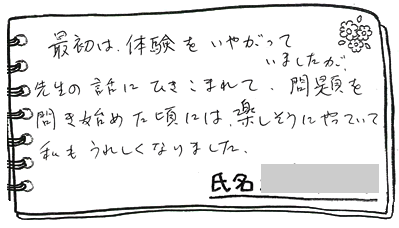 最初は、体験をいやがって
いましたが、
先生の話にひきこまれて、問題を
聞き始めた頃には、楽しそうにやっていて
私もうれしくなりました。
氏名